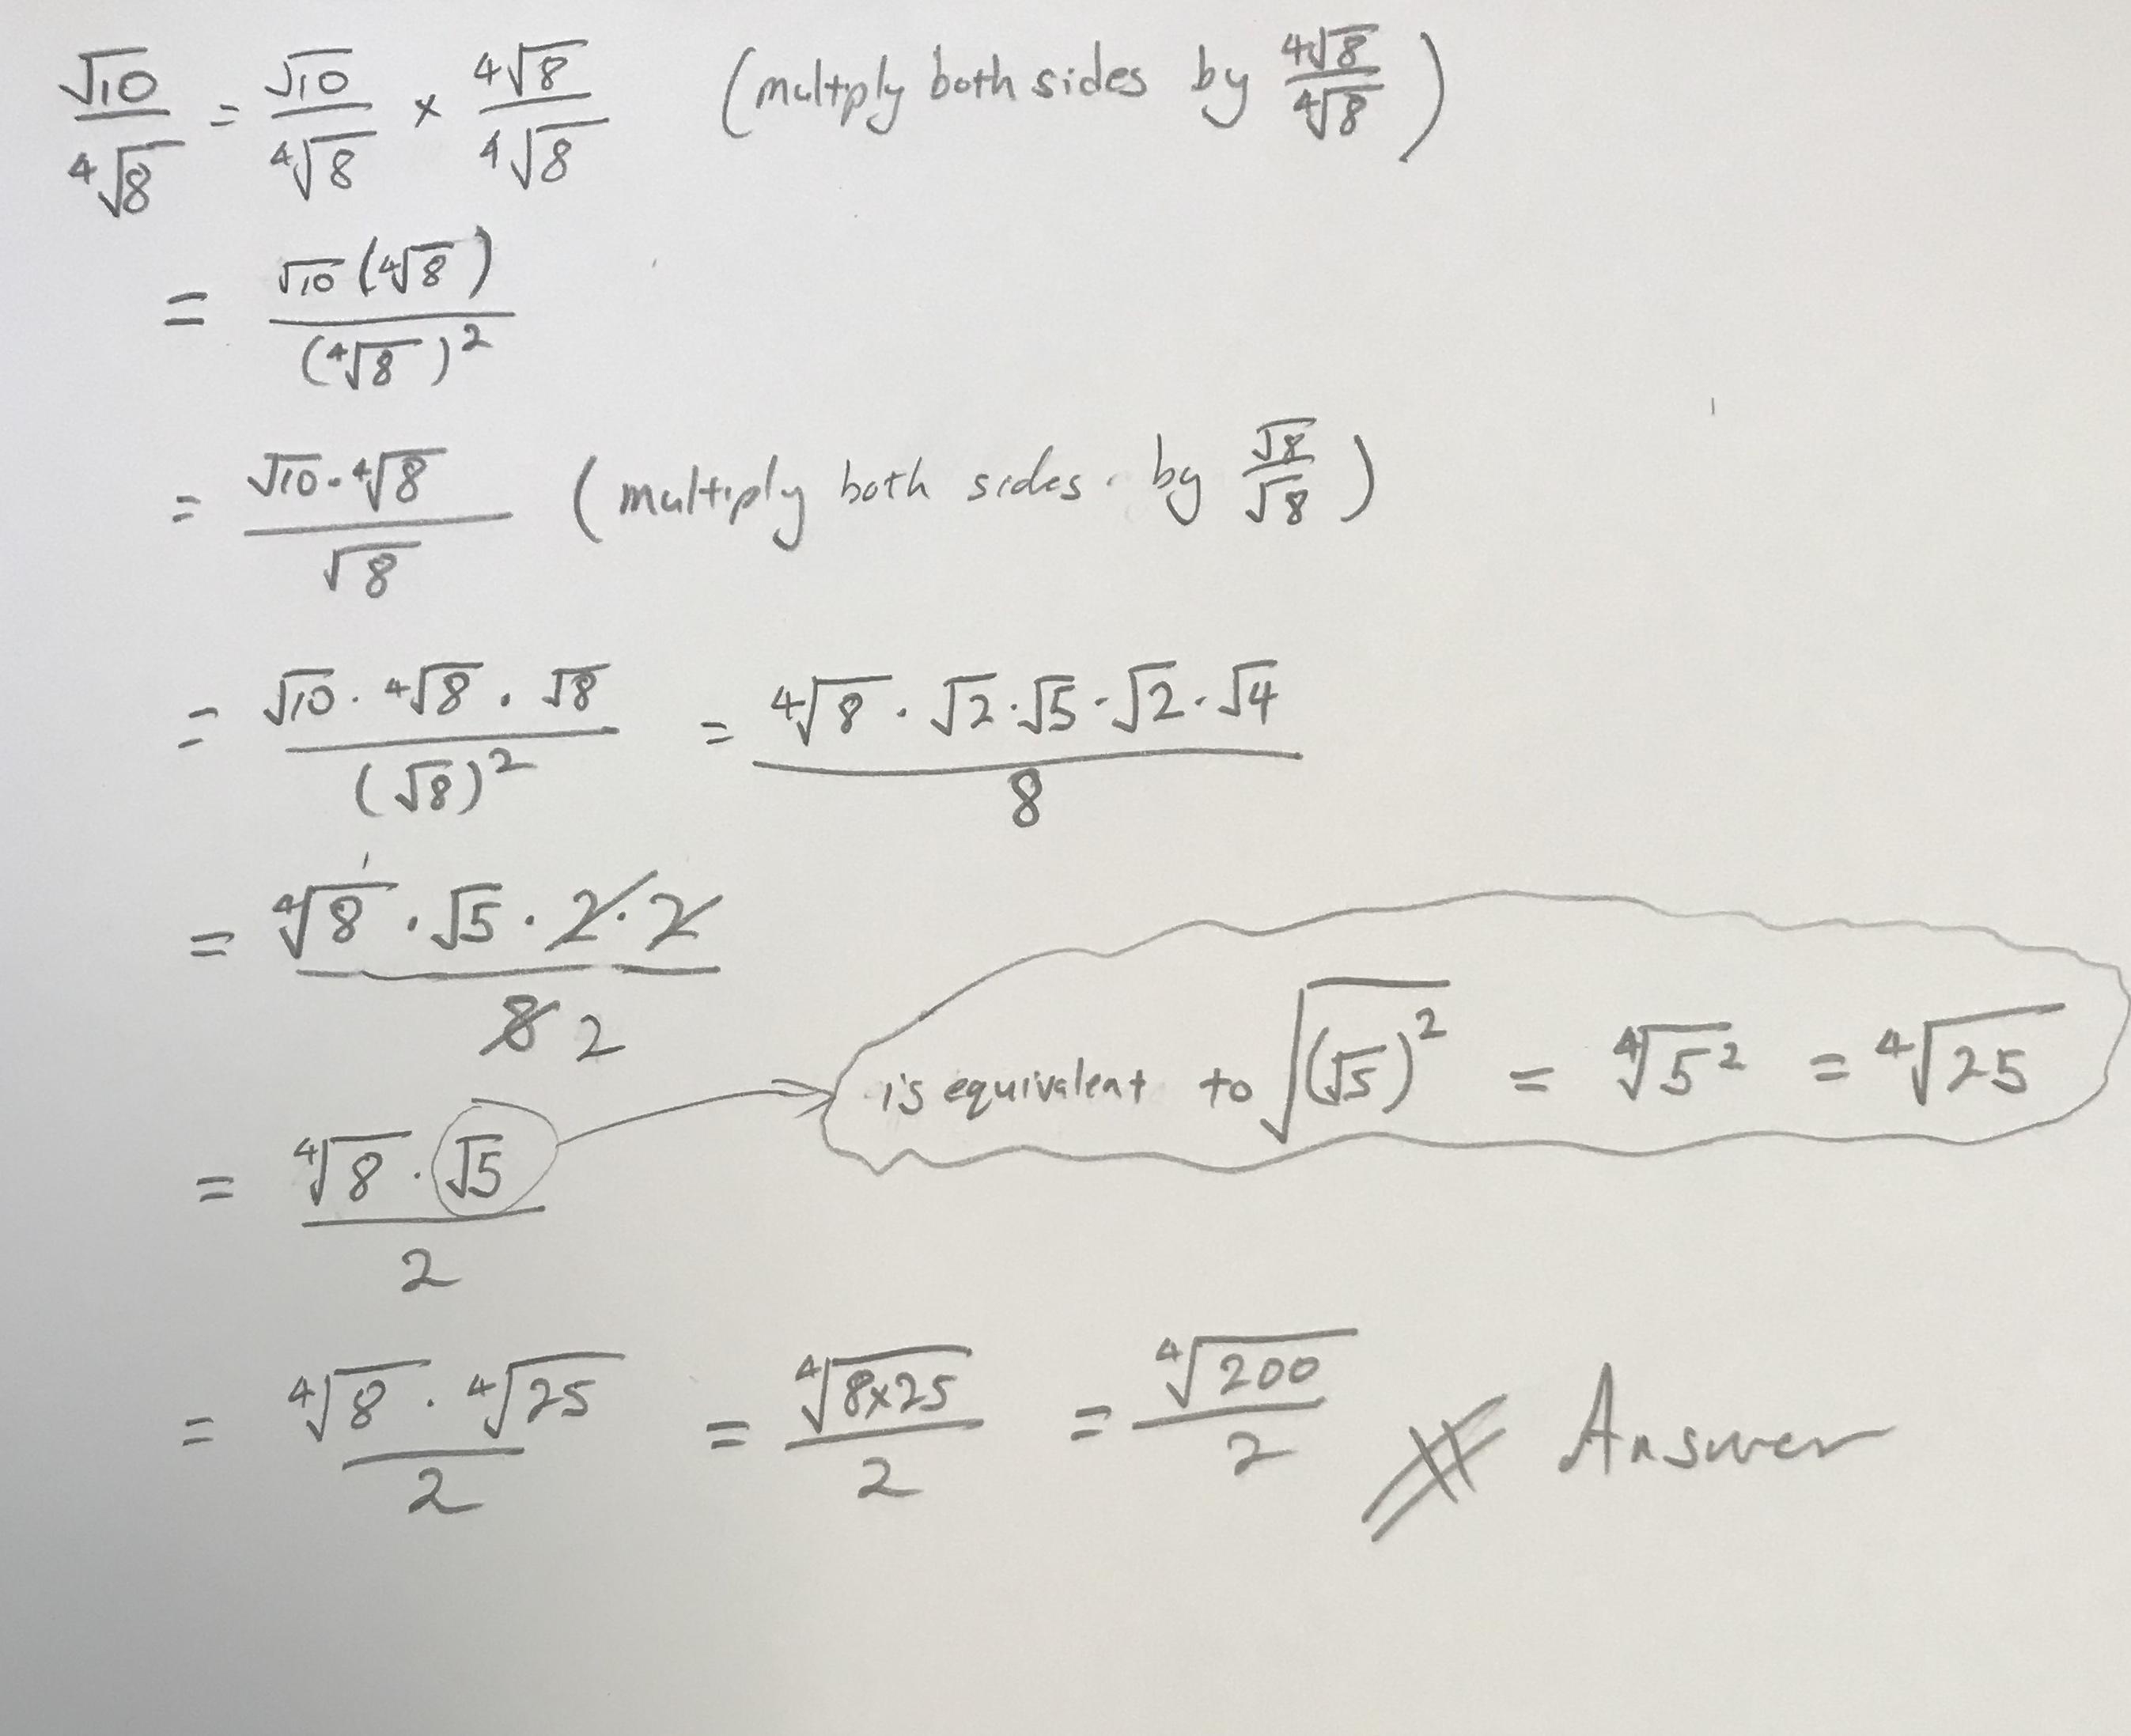 √10/∜8 = √10/∜8 × ∜8/∜8 (multply both sides by ∜8/∜8)
= √10(∜8)/(∜8)²
= √10·∜8/√8 (multiply both sides by √8/√8)
= √10·∜8·√8/(√8)² = ∜8·√2·√5·√2·√4/8
= ∜8·√5·2·2/8 2
= ∜8·√5/2 is equivalent to √(√5)² = ∜5² = ∜25
= ∜8·∜25/2 = ∜8×25/2 = ∜200/2 Answer